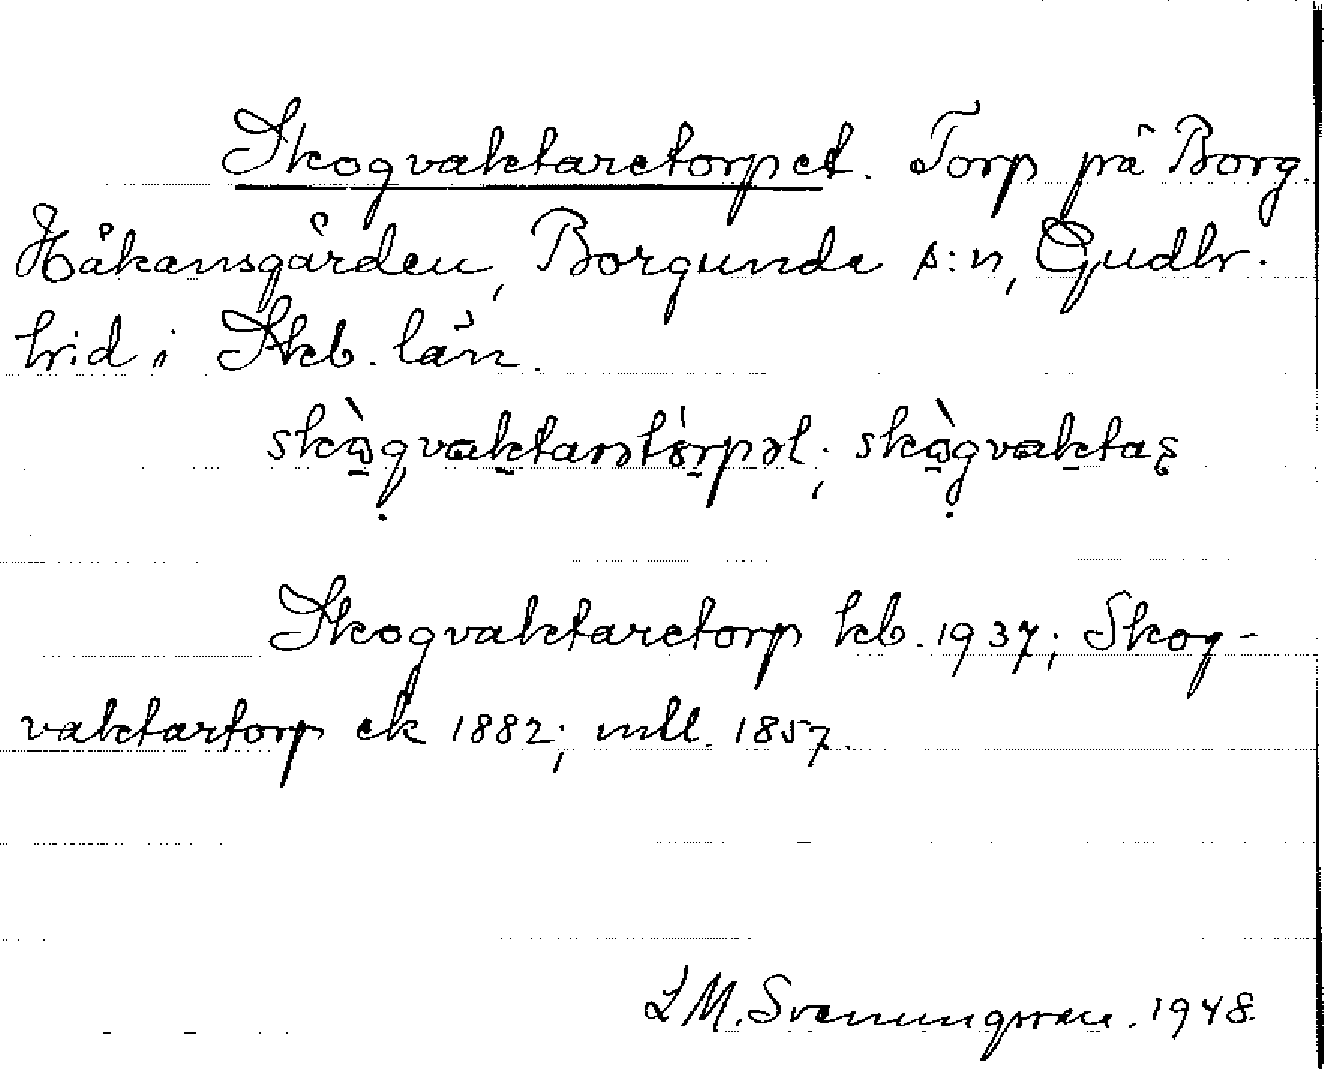 Skogvaktaretorpet. Torp på Borg.
Håkansgården, Borgunda s:n, Gudh.
hrd i Skb. län.
skògvaktarətòrpət; skògvaktaʂ
Skogvaktaretorp kb. 1937; Skog-
vaktartorp ek 1882; mtl. 1857.
L M. Svenungsson. 1948.